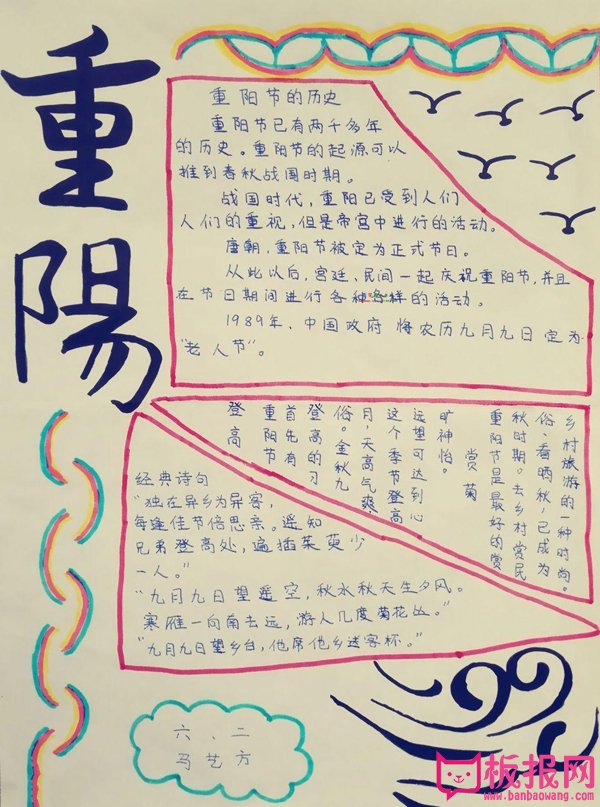 重陽
重阳节的历史
重阳节已有两千多年
的历史。重阳节的起源可以
推到春秋战国时期。
战国时代，重阳已受到人们
人们的重视，但是帝宫中进行的活动。
唐朝，重阳节被定为正式节日。
从此以后，宫廷、民间一起庆祝重阳节，并且
在节日期间进行各种各样的活动。
1989年、中国政府将农历九月九日定为
“老人节”。
登高
重阳节
首先有
登高的习
俗。金秋九
月，天高气爽，
这个季节登高
远望可达到心
旷神怡。
赏菊
重阳节是最好的赏
秋时期。去乡村赏民
俗、看晒秋，已成为
乡村旅游的一种时尚。
经典诗句
“独在异乡为异客，
每逢佳节倍思亲。遥知
兄弟登高处，遍插茱萸少
一人。”
“九月九日望遥空，秋水秋天生夕风。
寒雁一向南去远，游人几度菊花丛。”
“九月九日望乡台，他席他乡送客杯。”
六、二
马艺方
板报网
www.banbaowang.com